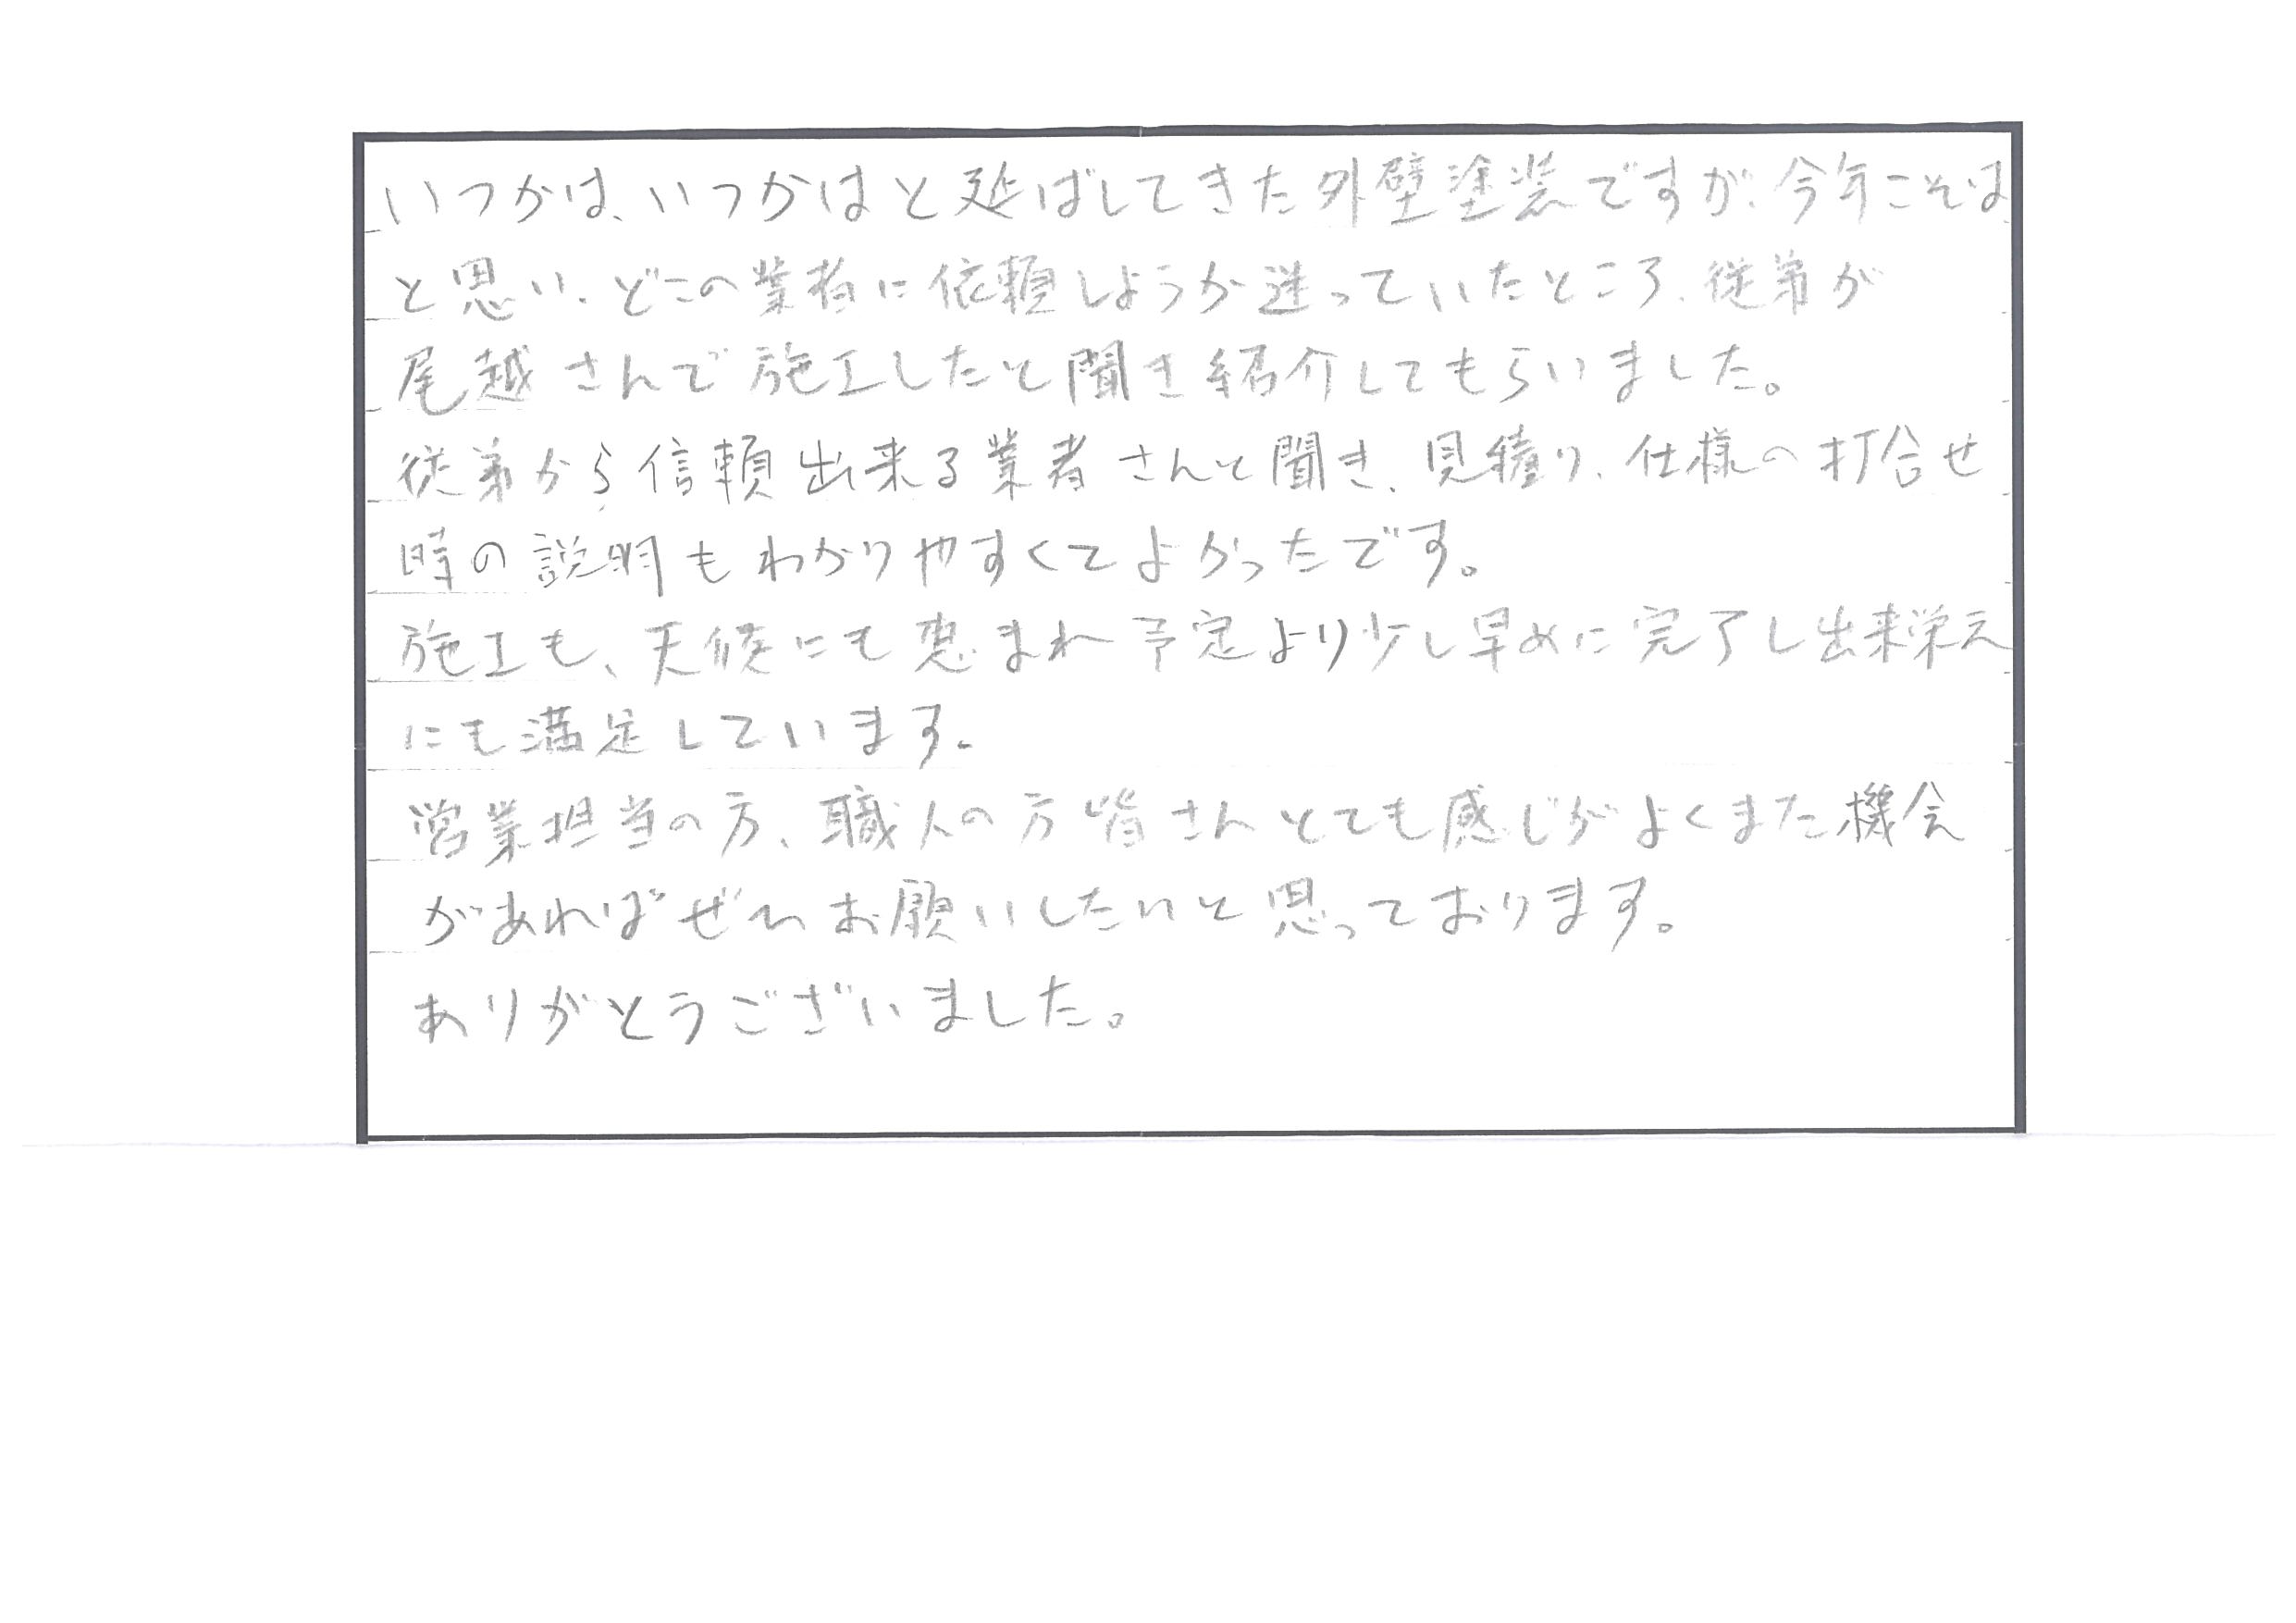 いつかは、いつかはと延ばしてきた外壁塗装ですが、今年こそは
と思い、どこの業者に依頼しようか迷っていたところ、従弟が
尾越さんで施工したと聞き紹介してもらいました。
従弟から信頼出来る業者さんと聞き、見積り、仕様の打合せ
時の説明もわかりやすくてよかったです。
施工も、天候にも恵まれ予定より少し早めに完了し出来栄え
にも満足しています。
営業担当の方、職人の方皆さんとても感じがよくまた機会
があればぜひお願いしたいと思っております。
ありがとうございました。